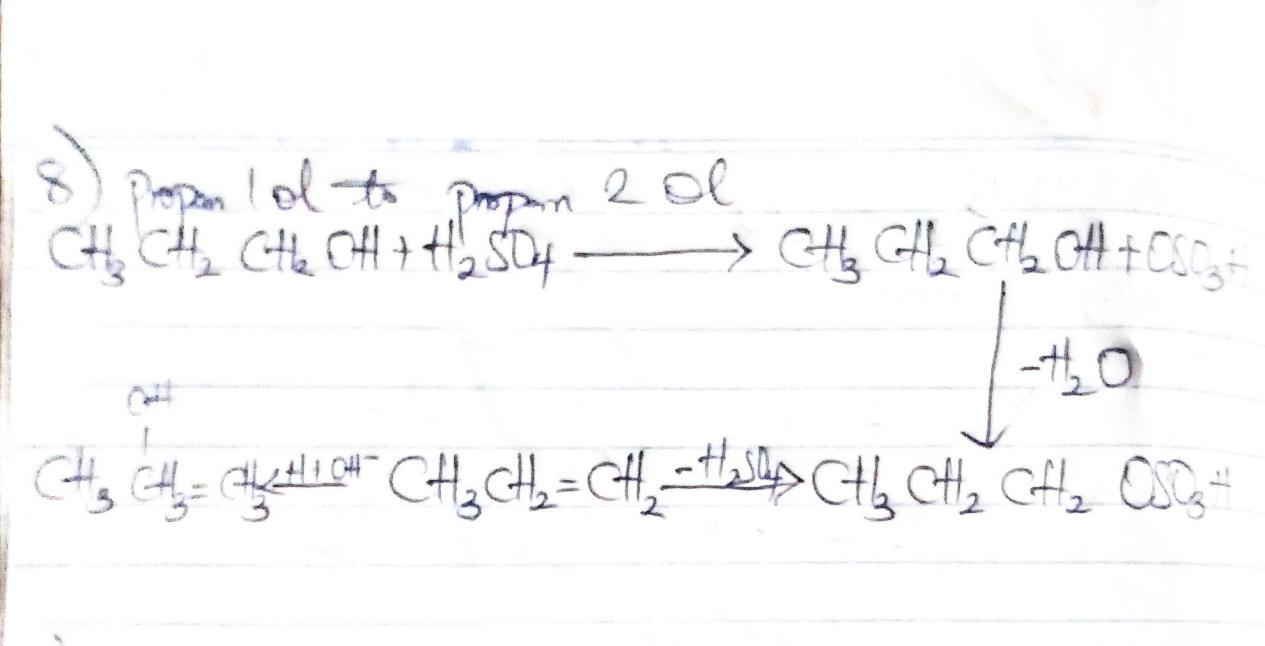 8) Propan 1 ol to propan 2 ol
CH₃ CH₂ CH₂ OH + H₂SO₄ ⟶ CH₃ CH₂ CH₂ OH + OSO₃H
-H₂O
OH
CH₃ CH₃ = CH₃ ⟵ H+OH⁻ CH₃CH₂=CH₂ -H₂SO₄ ⟶ CH₃ CH₂ CH₂ OSO₃H